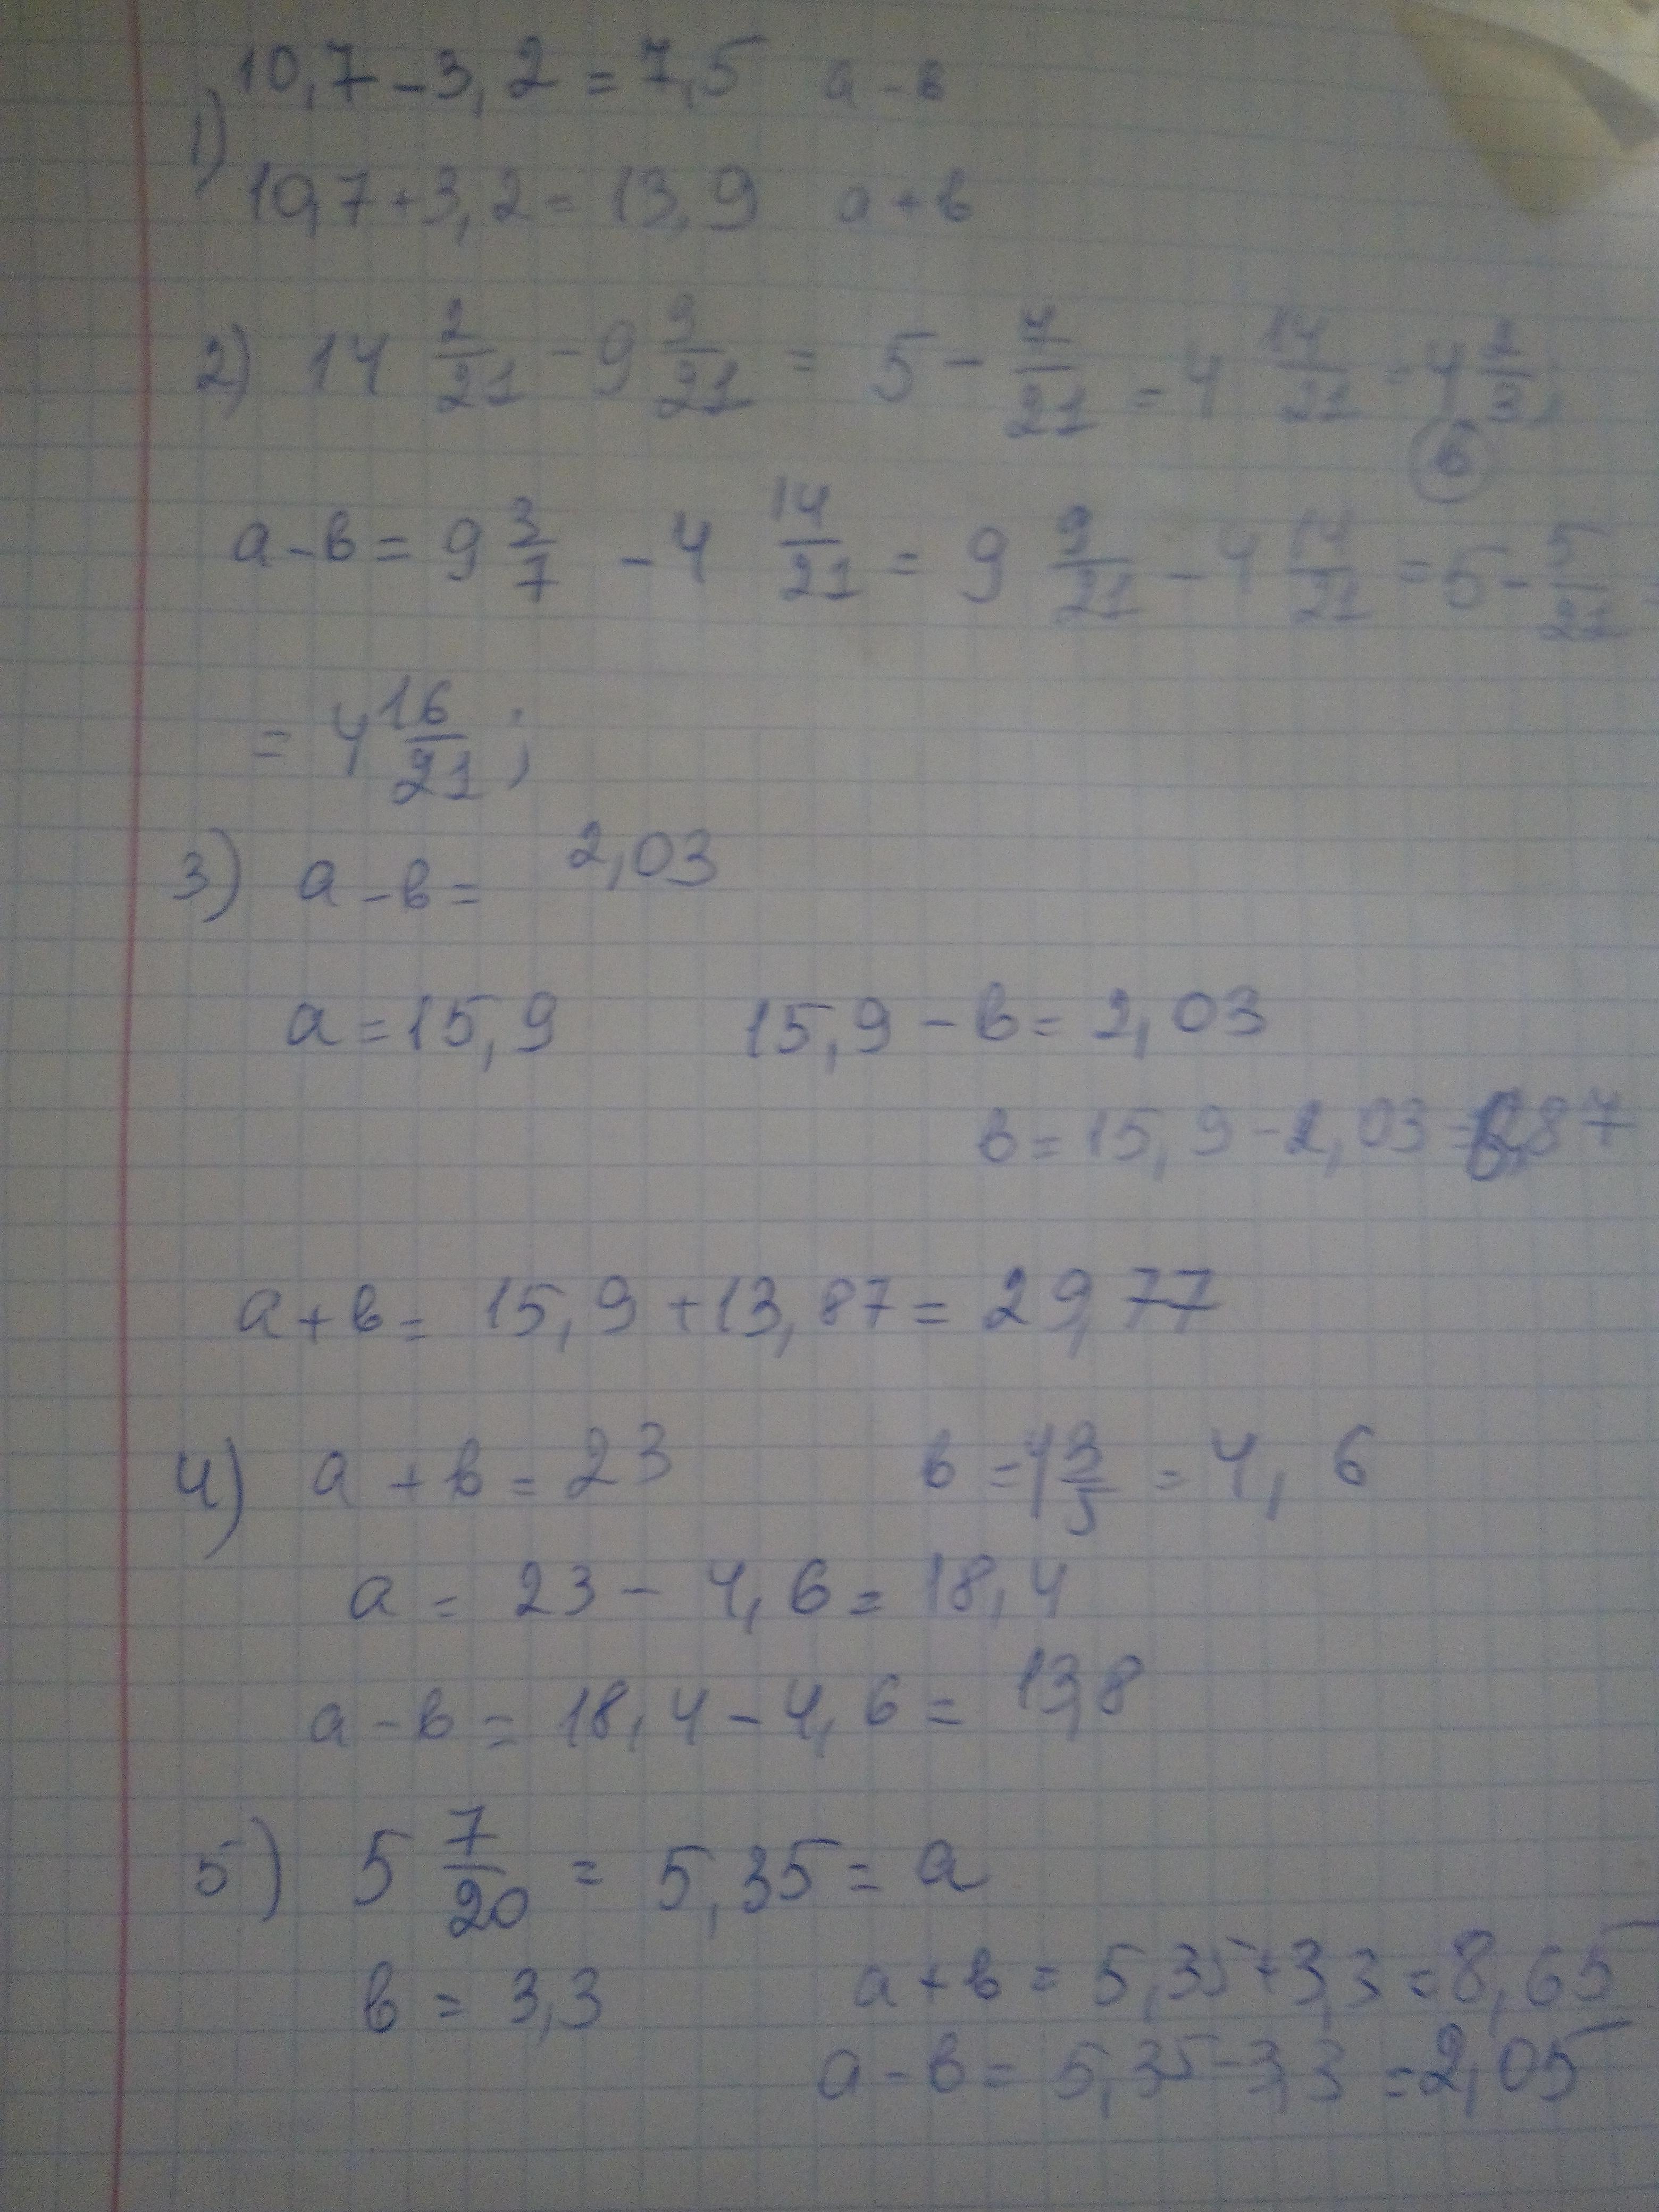 10,7 - 3,2 = 7,5 а - в
1)
10,7 + 3,2 = 13,9 а + в
2) 14 2/21 - 9 9/21 = 5 - 7/21 = 4 14/21 = 4 2/3;
в
а - в = 9 3/7 - 4 14/21 = 9 9/21 - 4 14/21 = 5 - 5/21 =
= 4 16/21;
3) а - в = 2,03
а = 15,9 15,9 - в = 2,03
в = 15,9 - 2,03 = ,87
а + в = 15,9 + 13,87 = 29,77
4) а + в = 23 в = 4 3/5 = 4,6
а = 23 - 4,6 = 18,4
а - в = 18,4 - 4,6 = 13,8
5) 5 7/20 = 5,35 = а
в = 3,3 а + в = 5,35 + 3,3 = 8,65
а - в = 5,35 - 3,3 = 2,05